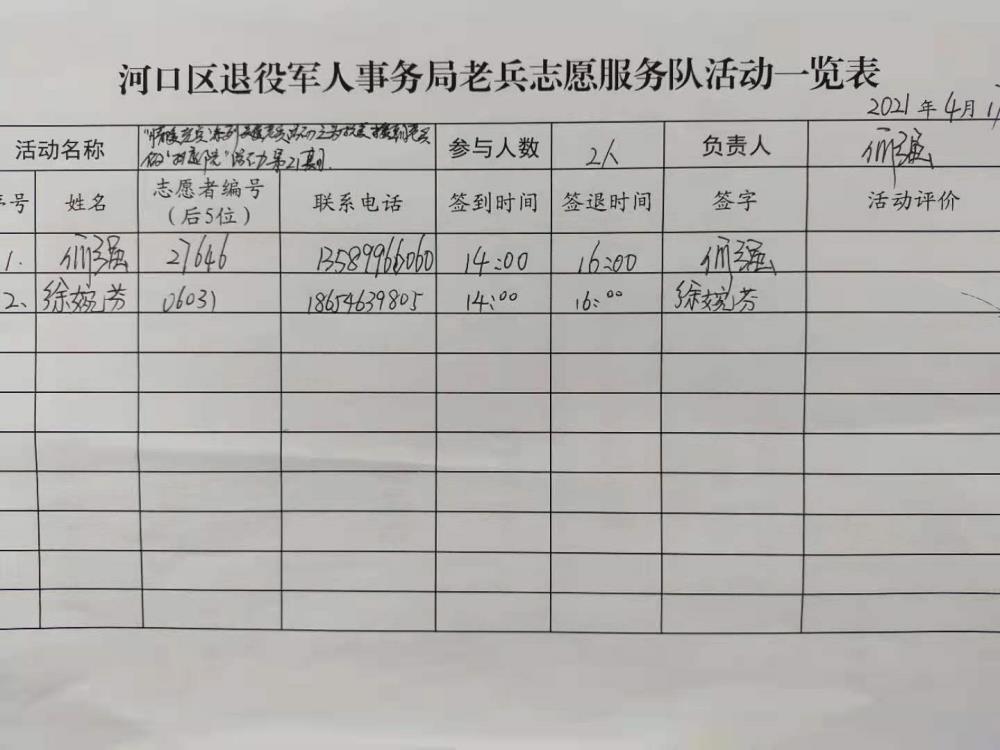 河口区退役军人事务局老兵志愿服务队活动一览表
2021年4月1
活动名称 参与人数 2人 负责人 强
第21期
序号 姓名 志愿者编号（后5位） 联系电话 签到时间 签退时间 签字 活动评价
1. 强 27646 13589966060 14:00 16:00 强
2、 徐婉芳 06031 18654639805 14:00 16:00 徐婉芳